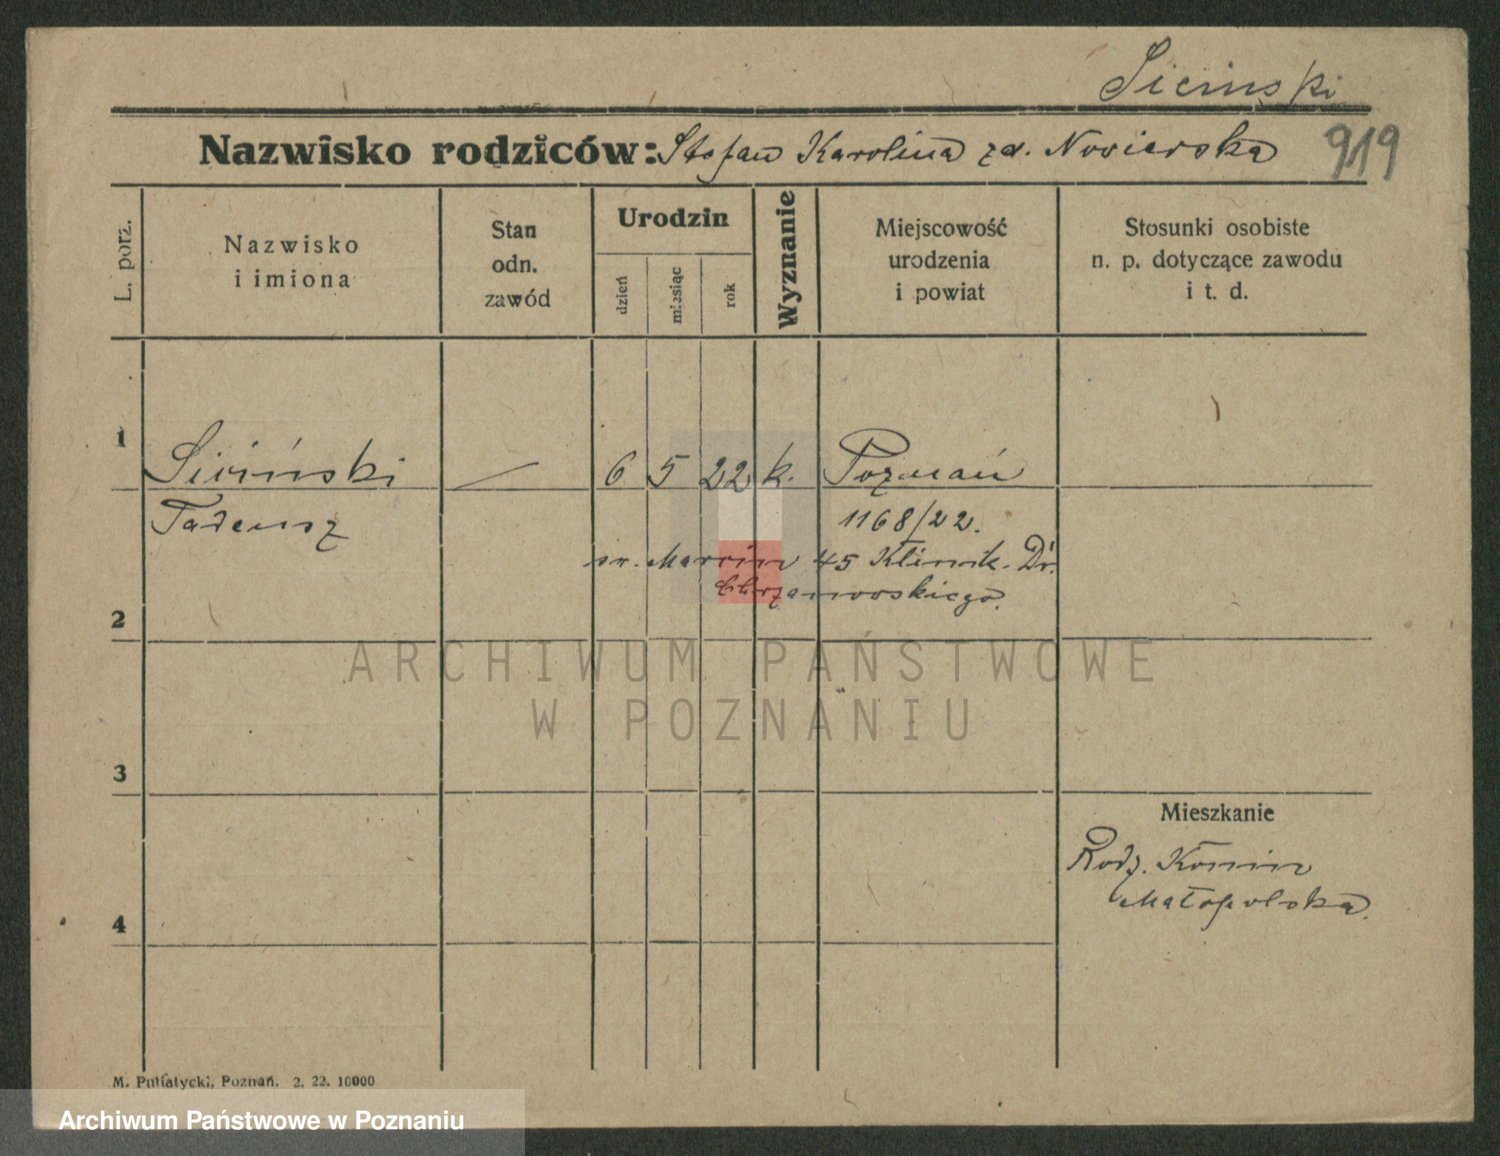 Siciński
Nazwisko rodziców: Stefan Karolina zd. Nowierska 919
L. porz.
Nazwisko
i imiona
Stan
odn.
zawód
Urodzin
dzień
miesiąc
rok
Wyznanie
Miejscowość
urodzenia
i powiat
Stosunki osobiste
n. p. dotyczące zawodu
i t. d.
1
Siciński — 6 5 22 k. Poznań
Tadeusz 1168/22.
św. Marcin 45 Klinik. Dr.
Chrzanowskiego.
2
ARCHIWUM PAŃSTWOWE
W POZNANIU
3
Mieszkanie
Rodz. Konin
Małopolska.
4
M. Putiatycki, Poznań. 2. 22. 10000
Archiwum Państwowe w Poznaniu